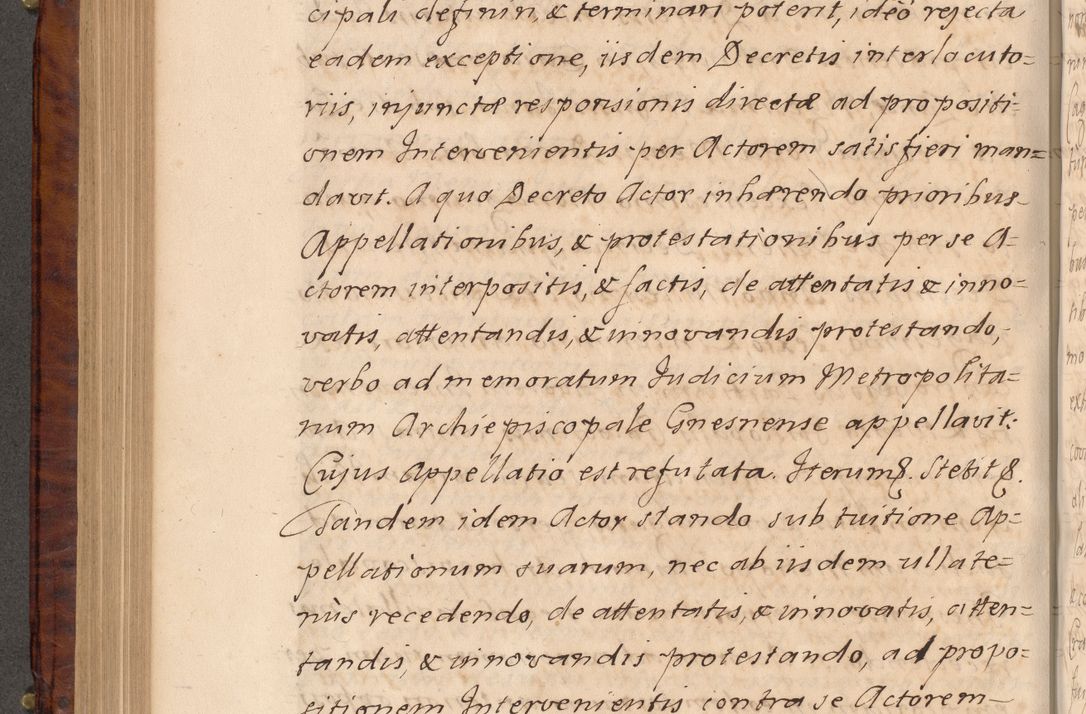 cipali definiri, & terminari poterit, ideò rejecta
eadem exceptione, iisdem Decretis interlocuto=
riis, injunctæ responsionis directæ ad propositi=
onem Intervenientis per Actorem satisfieri man=
davit. A quo Decreto Actor inhærendo prioribus
Appellationibus, & protestationibus per se A=
ctorem interpositis, & factis, de attentatis & inno=
vatis, attentandis, & innovandis protestando,
verbo ad memoratum Judicium Metropolita=
num Archiepiscopale Gnesnense appellavit.
Cujus Appellatio est refutata. Iterum &. Stetit &.
Tandem idem Actor stando sub tuitione Ap=
pellationum suarum, nec ab iisdem ullate=
nùs recedendo, de attentatis, & innovatis, atten=
tandis, & innovandis protestando, ad propo=
sitionem Intervenientis contra se Actorem